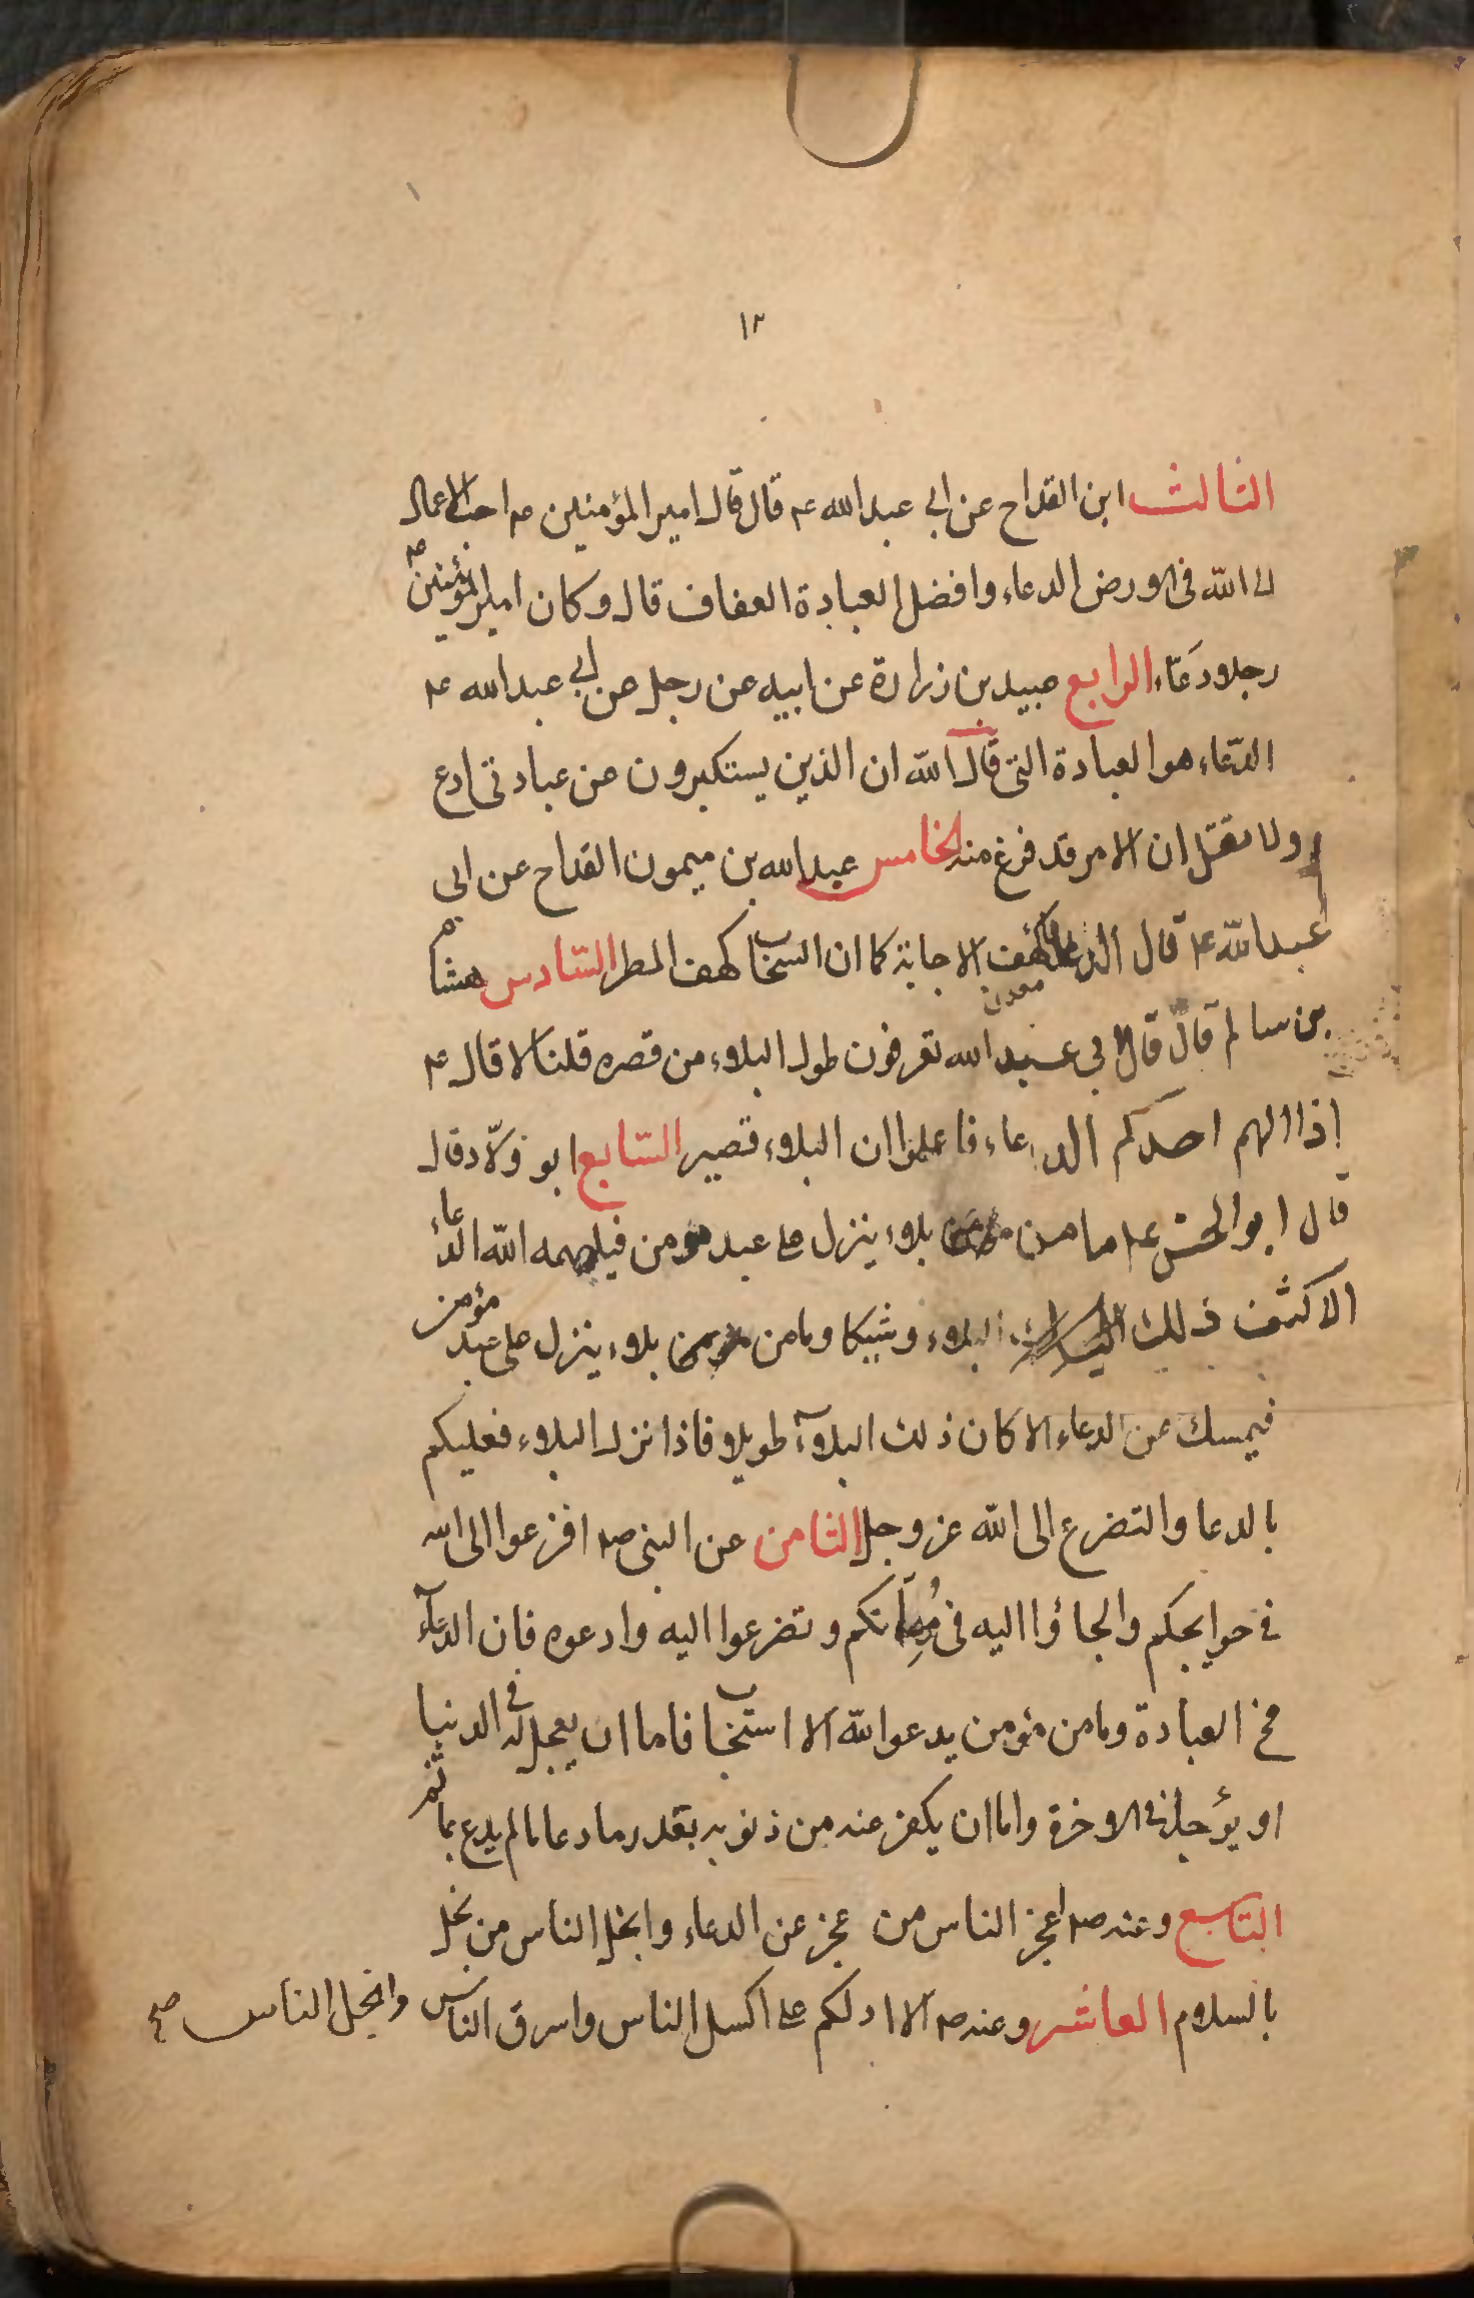 ١٢
الثالث ابن القداح عن ابي عبدالله ع قال قال امير المؤمنين ع احب الاعمال
الى الله فى الارض الدعاء وافضل العبادة العفاف قال وكان امير المؤمنين ع
رجلا دعّاء الرابع عبيد بن زرارة عن ابيه عن رجل عن ابي عبدالله ع
الدّعاء هو العبادة التى قال الله ان الذين يستكبرون عن عبادتى ادع
ولا تقتل ان الامر قد فرغ منه الخامس عبدالله بن ميمون القداح عن ابى
عبدالله ع قال الدعاء كهف الاجابة كما ان السحاب كهف المطر السّادس هشام
بن سالم قال قال ابى عبدالله تعرفون طول البلاء من قصره قلنا لا قال ع
اذا الهم احدكم الدعاء فاعلموا ان البلاء قصير السّابع ابو ولّاد قال
قال ابو الحسن ع ما من بلاء ينزل على عبد مؤمن فيلهمه الله الدعاء
الا كشف ذلك البلاء وشيكا وما من بلاء ينزل على عبد مؤمن
فيمسك عن الدعاء الا كان ذلك البلاء طويلا فاذا نزل البلاء فعليكم
بالدعا والتضرع الى الله عز وجل الثامن عن النبى ص افزعوا الى الله
في حوايجكم والجاؤا اليه فى مُلِمّاتكم وتضرعوا اليه وادعوه فان الدعاء
مخ العبادة وما من مؤمن يدعوا الله الا استجاب فاما ان يعجل له في الدنيا
او يؤجل فى الاخرة واما ان يكفر عنه من ذنوبه بقدر ما دعا ما لم يدع بماثم
التاسع وعنه ص اعجز الناس من عجز عن الدعاء وابخل الناس من بخل
بالسلام العاشر وعنه ص الا ادلكم على اكسل الناس واسرق الناس وابخل الناس